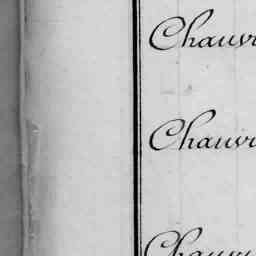 Chauv
Chauv
Chauv